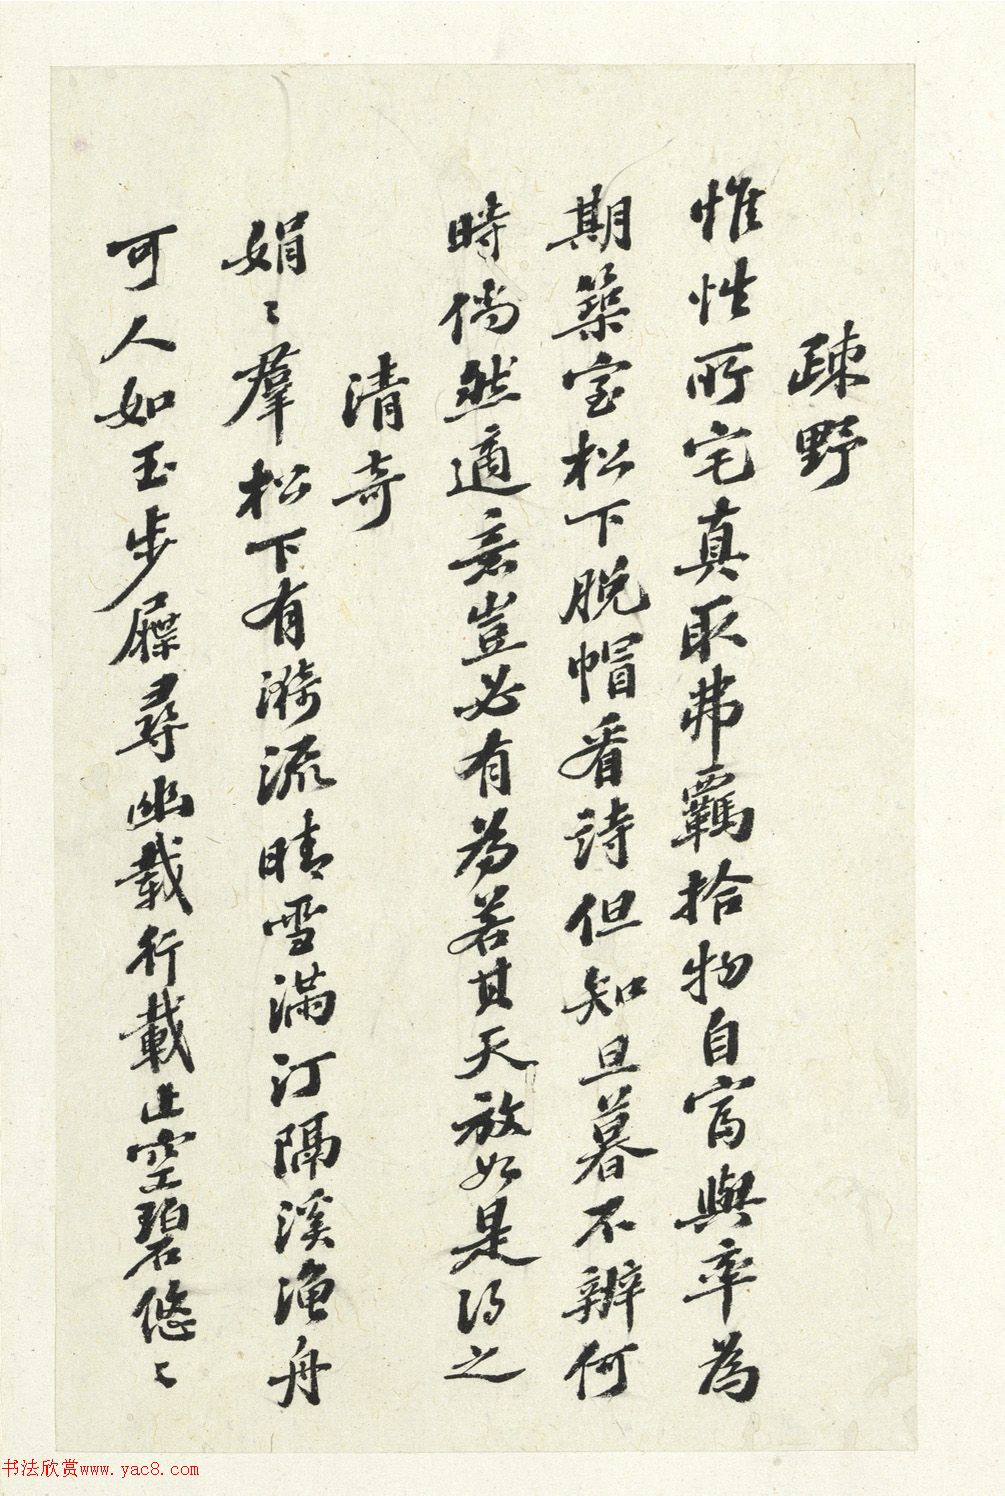 疎野
惟性所宅真取弗羈拾物自富與率為
期築室松下脱帽看詩但知旦暮不辨何
時倘然適意豈必有為若其天放如是得之
清奇
娟〻羣松下有漪流晴雪滿汀隔溪漁舟
可人如玉步屧尋幽載行載止空碧悠〻
书法欣赏www.yac8.com